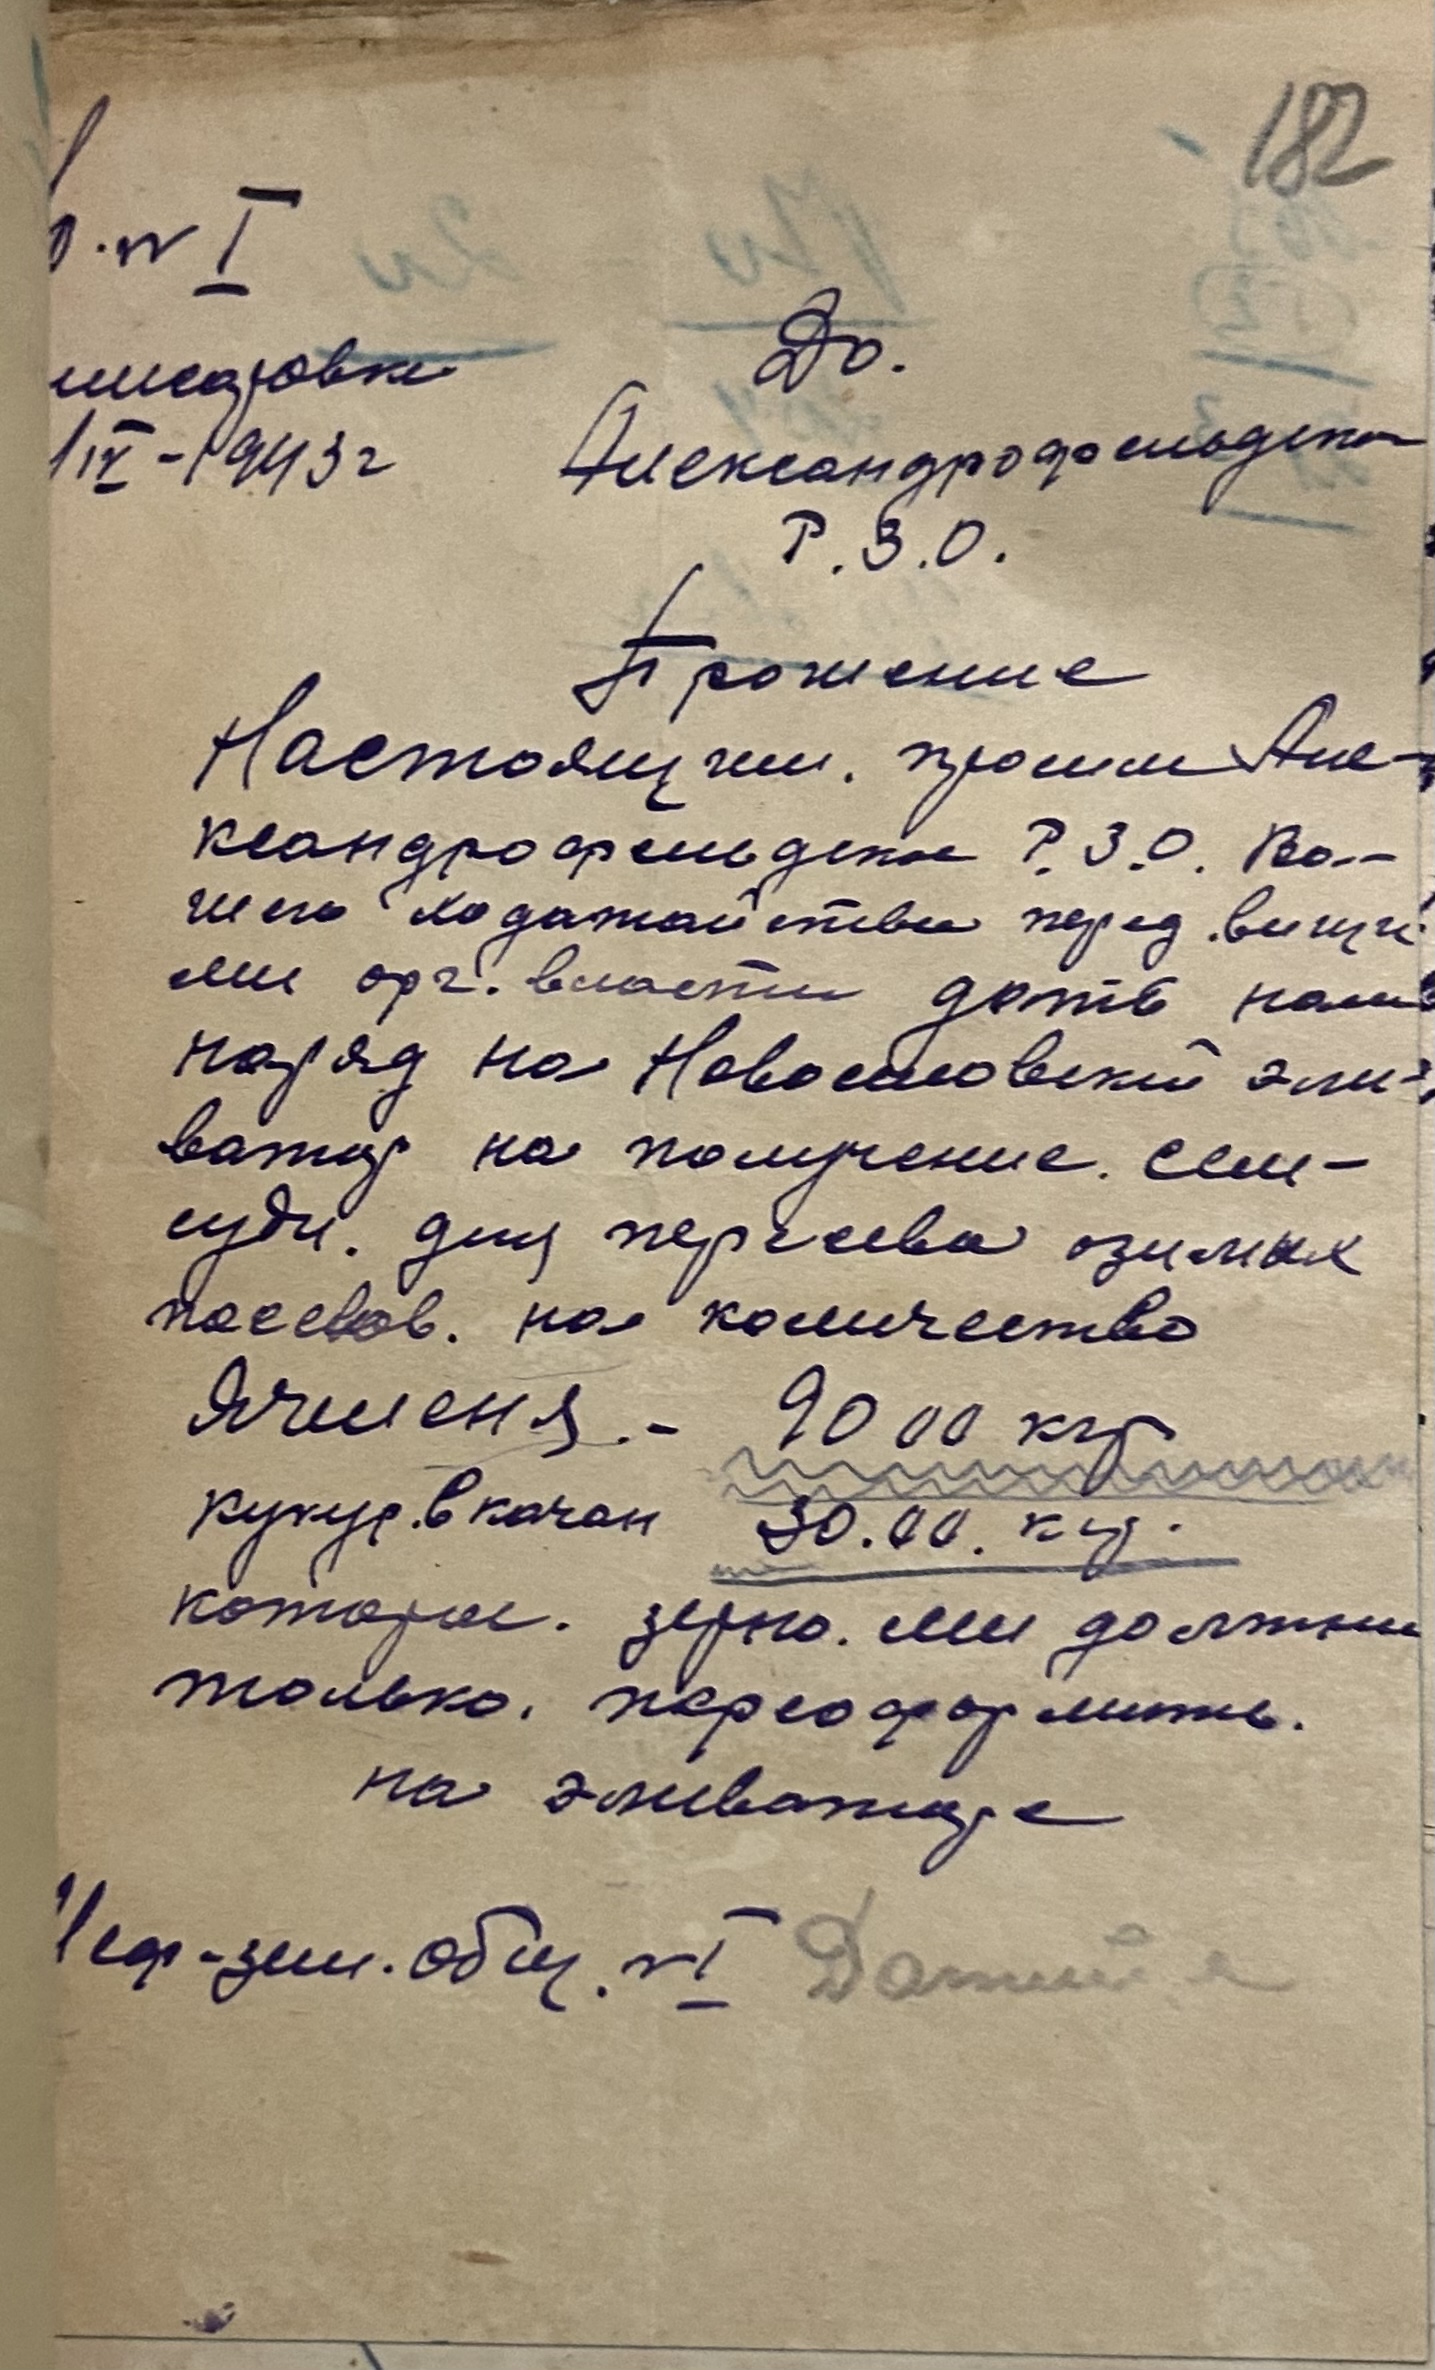 182
о. № I
До.
IV-1943г
Александрофельдско
Р.З.О.
Прошение
Настоящим. просим Але-
ксандрофельдское Р.З.О. Ва-
шего ходатайства перед
ми орг. власти дать нам
наряд на эли-
ватор на получение. сем-
суди. для пересева озимых
посевов. на количество
Ячменя.- 9000 кгр
кукур. в качан 30.00. кгр.
которое. зерно. ми должни
только. переоформить.
на эливаторе
зем. общ. № I